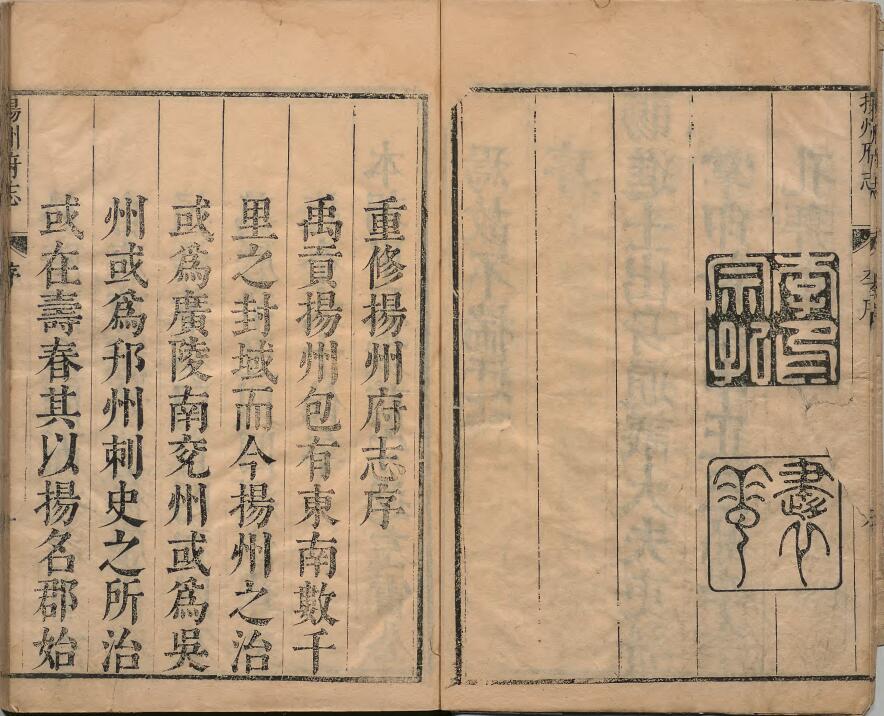 揚州府志
李序
李印宗孔
書雲
重修揚州府志序
禹貢揚州包有東南數千
里之封域而今揚州之治
或爲廣陵南兗州或爲吳
州或爲邗州刺史之所治
或在壽春其以揚名郡始
揚州府志
序
一